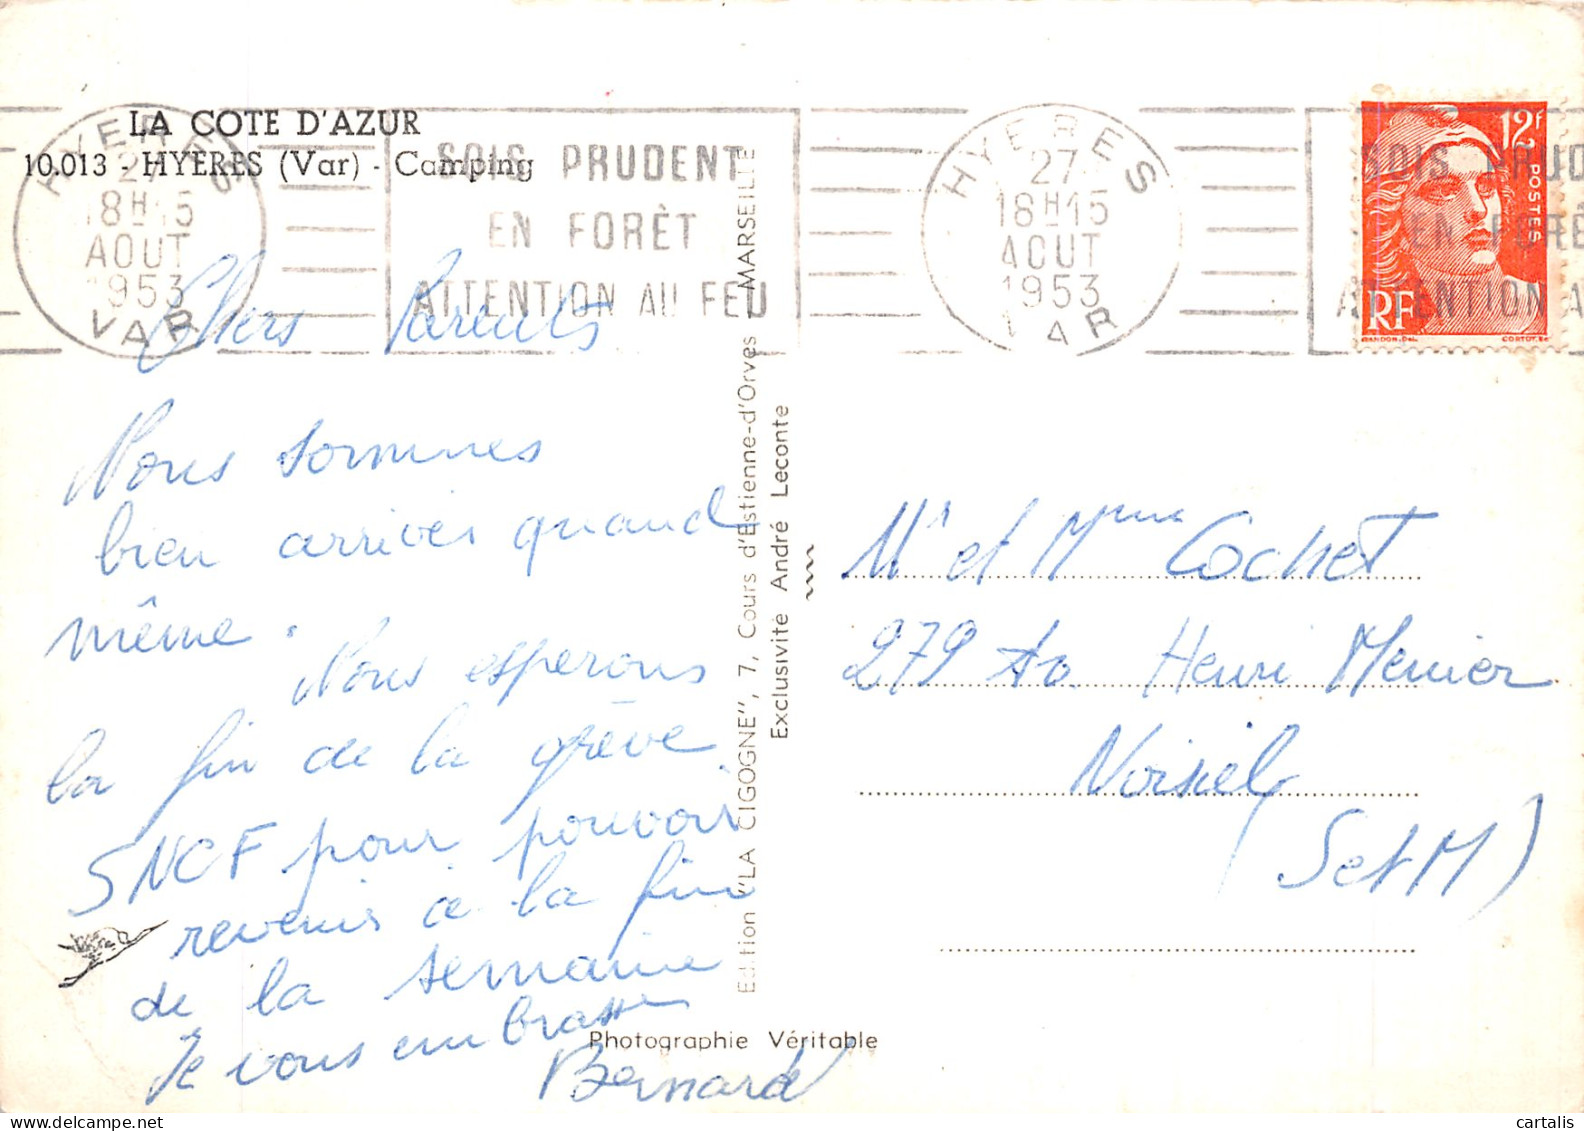 LA COTE D'AZUR
10.013 - HYERES (Var) - Camping
HYERES
18H15
AOUT
1953
VAR
SOIS PRUDENT
EN FORÊT
ATTENTION AU FEU
HYERES
27
18H15
AOUT
1953
VAR
SOIS PRUD
EN FORÊ
ATTENTION A
12F
POSTES
RF
GANDON.DEL.
CORTOT.SC
Chers Parents
Nous sommes
bien arrivés quand
même.
Nous esperons
la fin de la grève
SNCF pour pouvoir
revenir à la fin
de la semaine
Je vous embrasse
Bernard
Edition "LA CIGOGNE", 7, Cours d'Estienne-d'Orves MARSEILLE
Exclusivité André Leconte
Photographie Véritable
Mr et Mme Cochet
279 Av Henri Menier
Noisiel
Set M)
cartalis